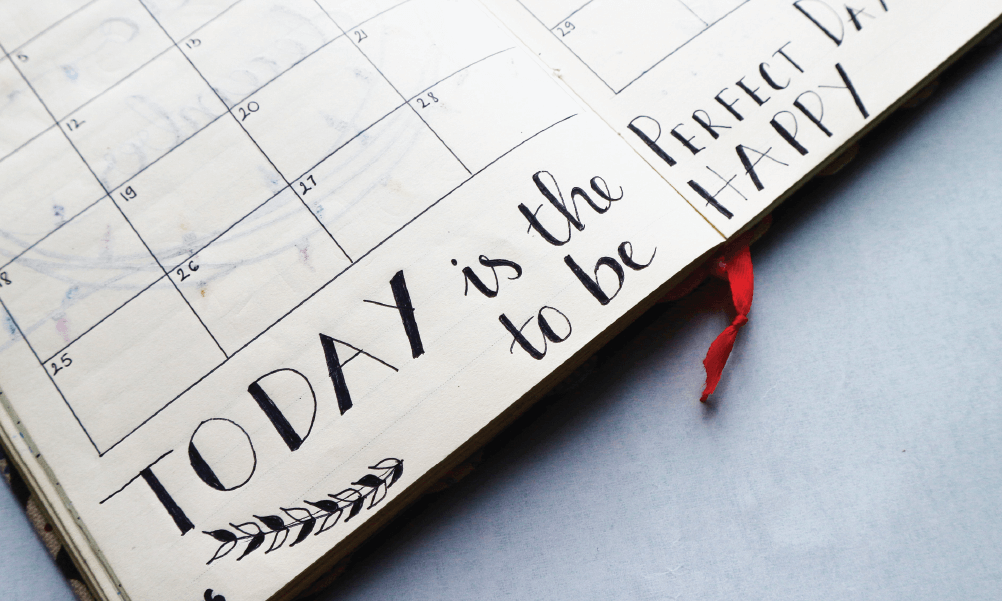 5
12 13
19 20 21
25 26 27 28
29
TODAY is the
to be
PERFECT DAY
HAPPY